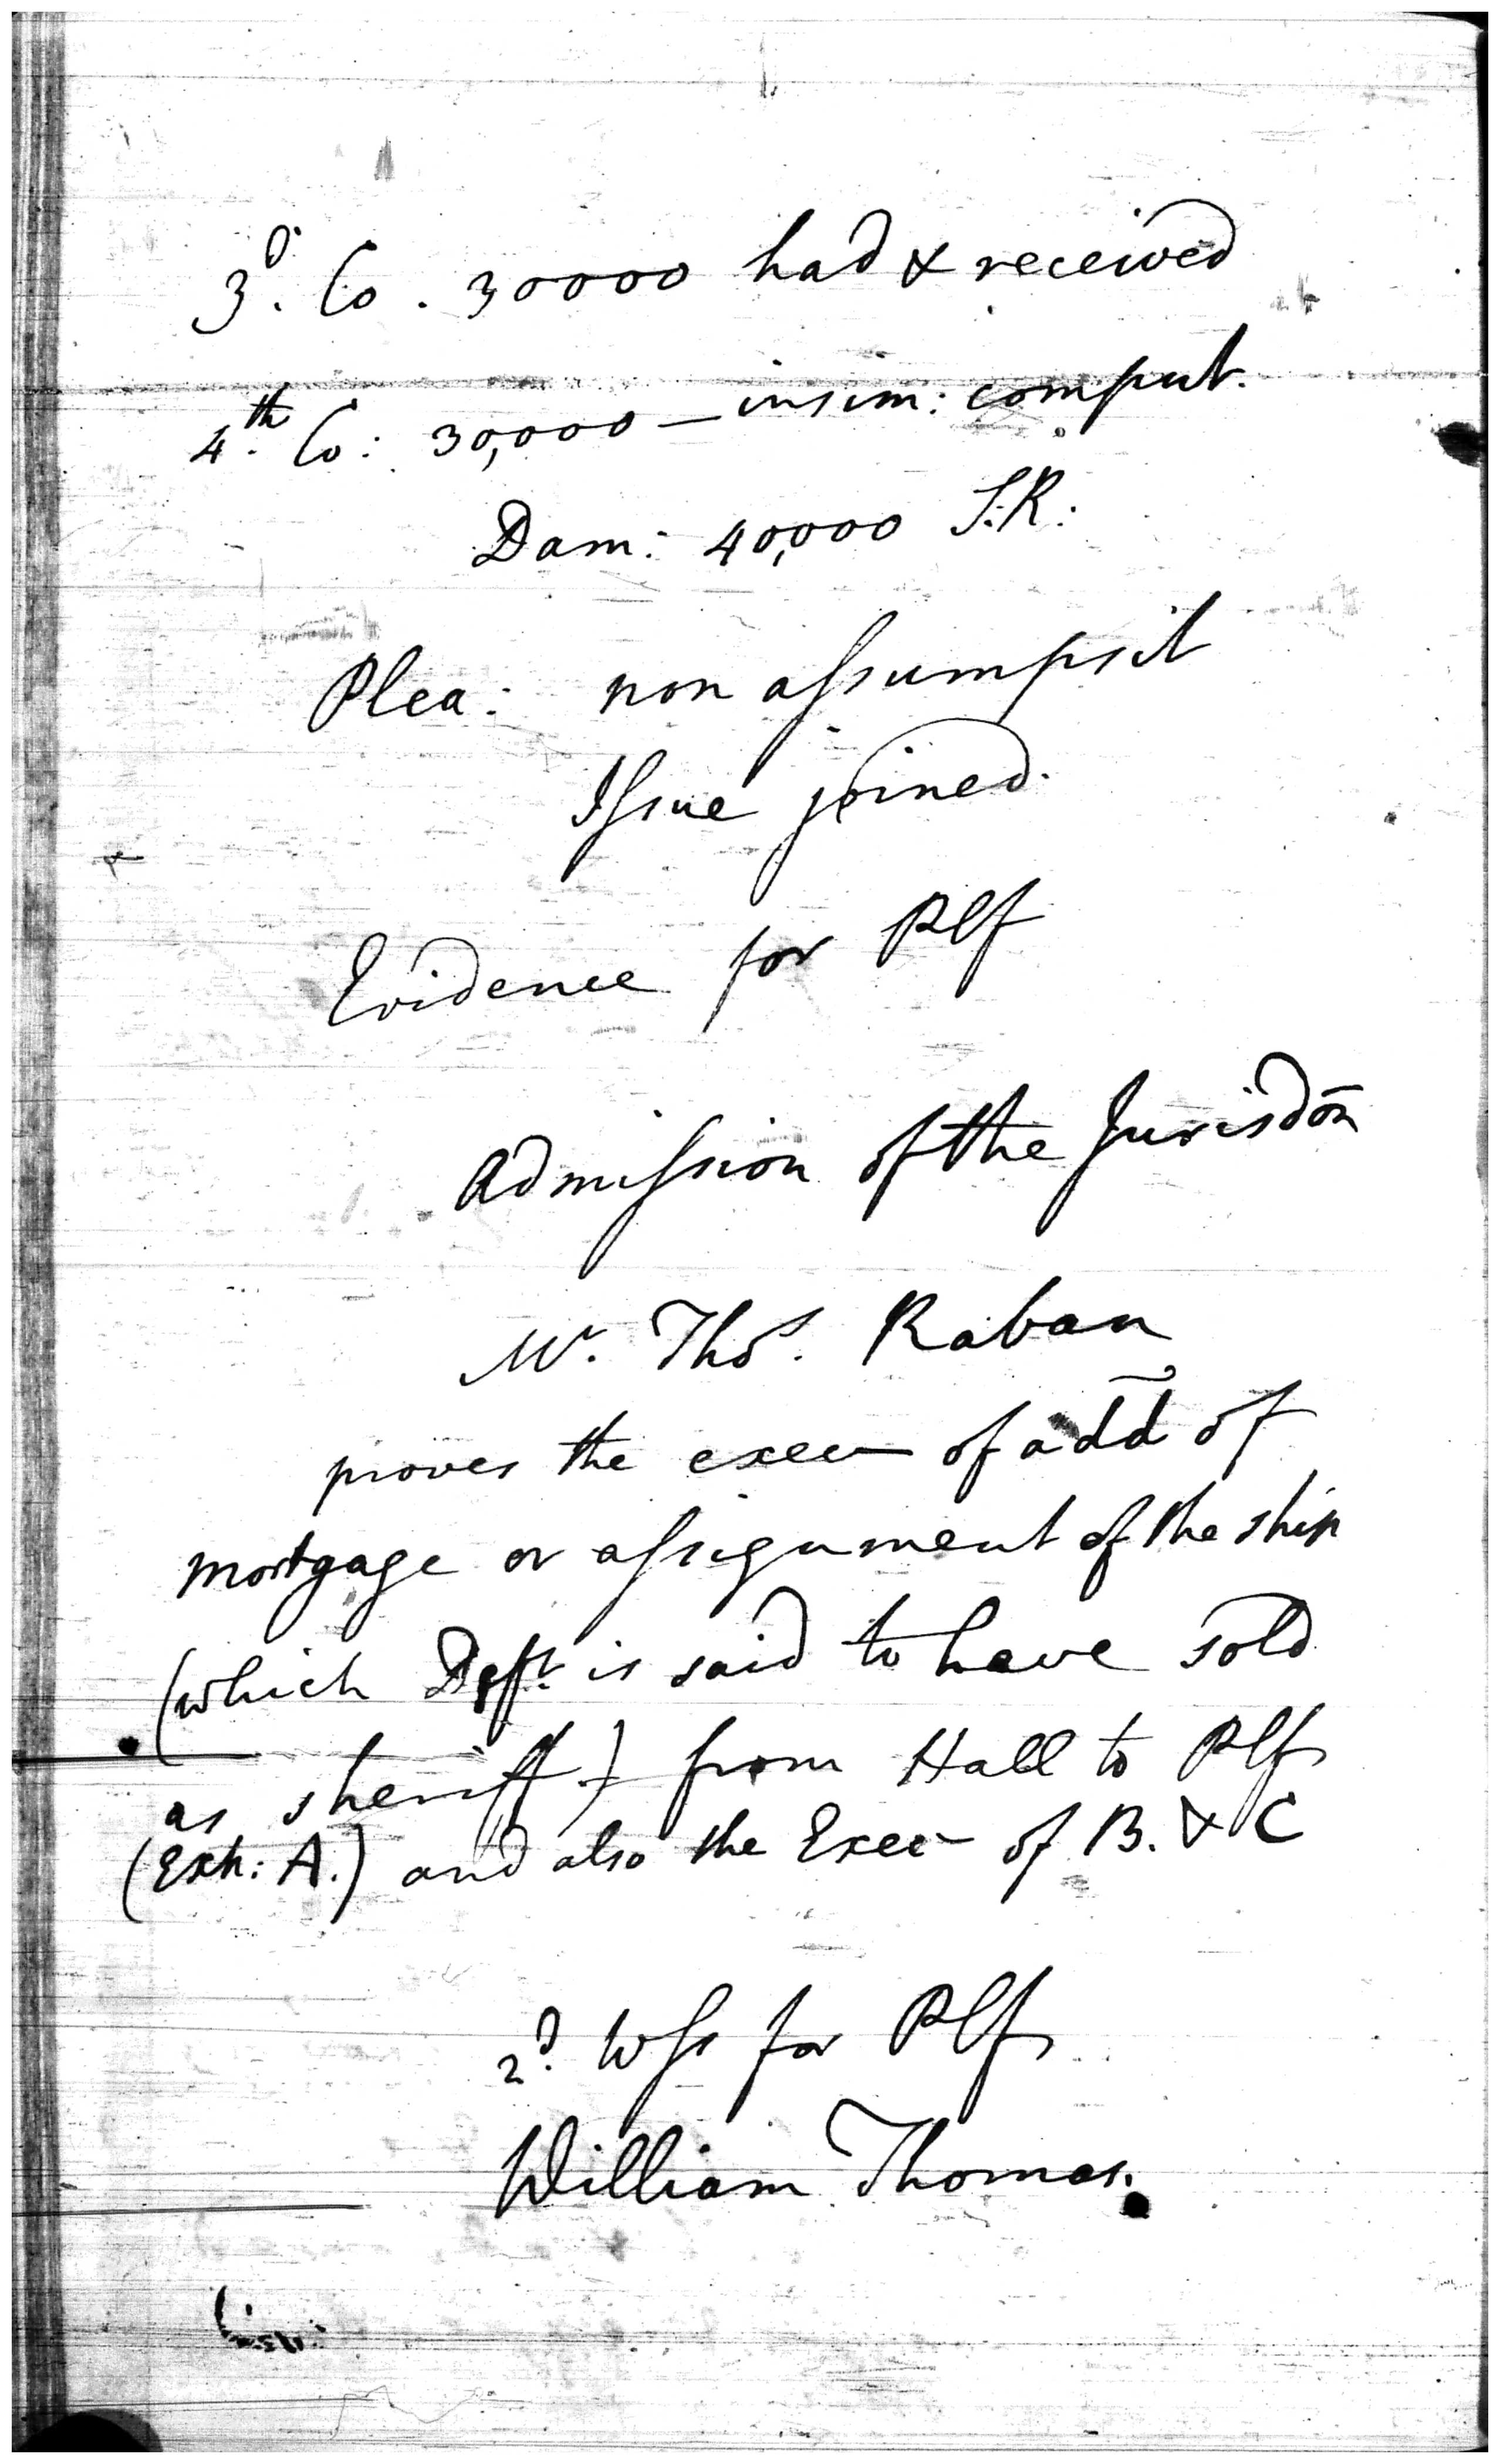 3d. Co. 30000 had & received
4th. Co: 30,000 – insim: comput.
Dam: 40,000 S.R:
Plea: non assumpsit
Issue joined.
Evidence for Plf
Admission of the Jurisdon
Mr. Thos. Raban
proves the execn of a dd of
mortgage or assignment of the ship
(which Deft. is said to have sold
as sheriff) from Hall to Plf
(Exh: A.) and also the Execn of B. & C
2d. Wss for Plf
William Thomas.